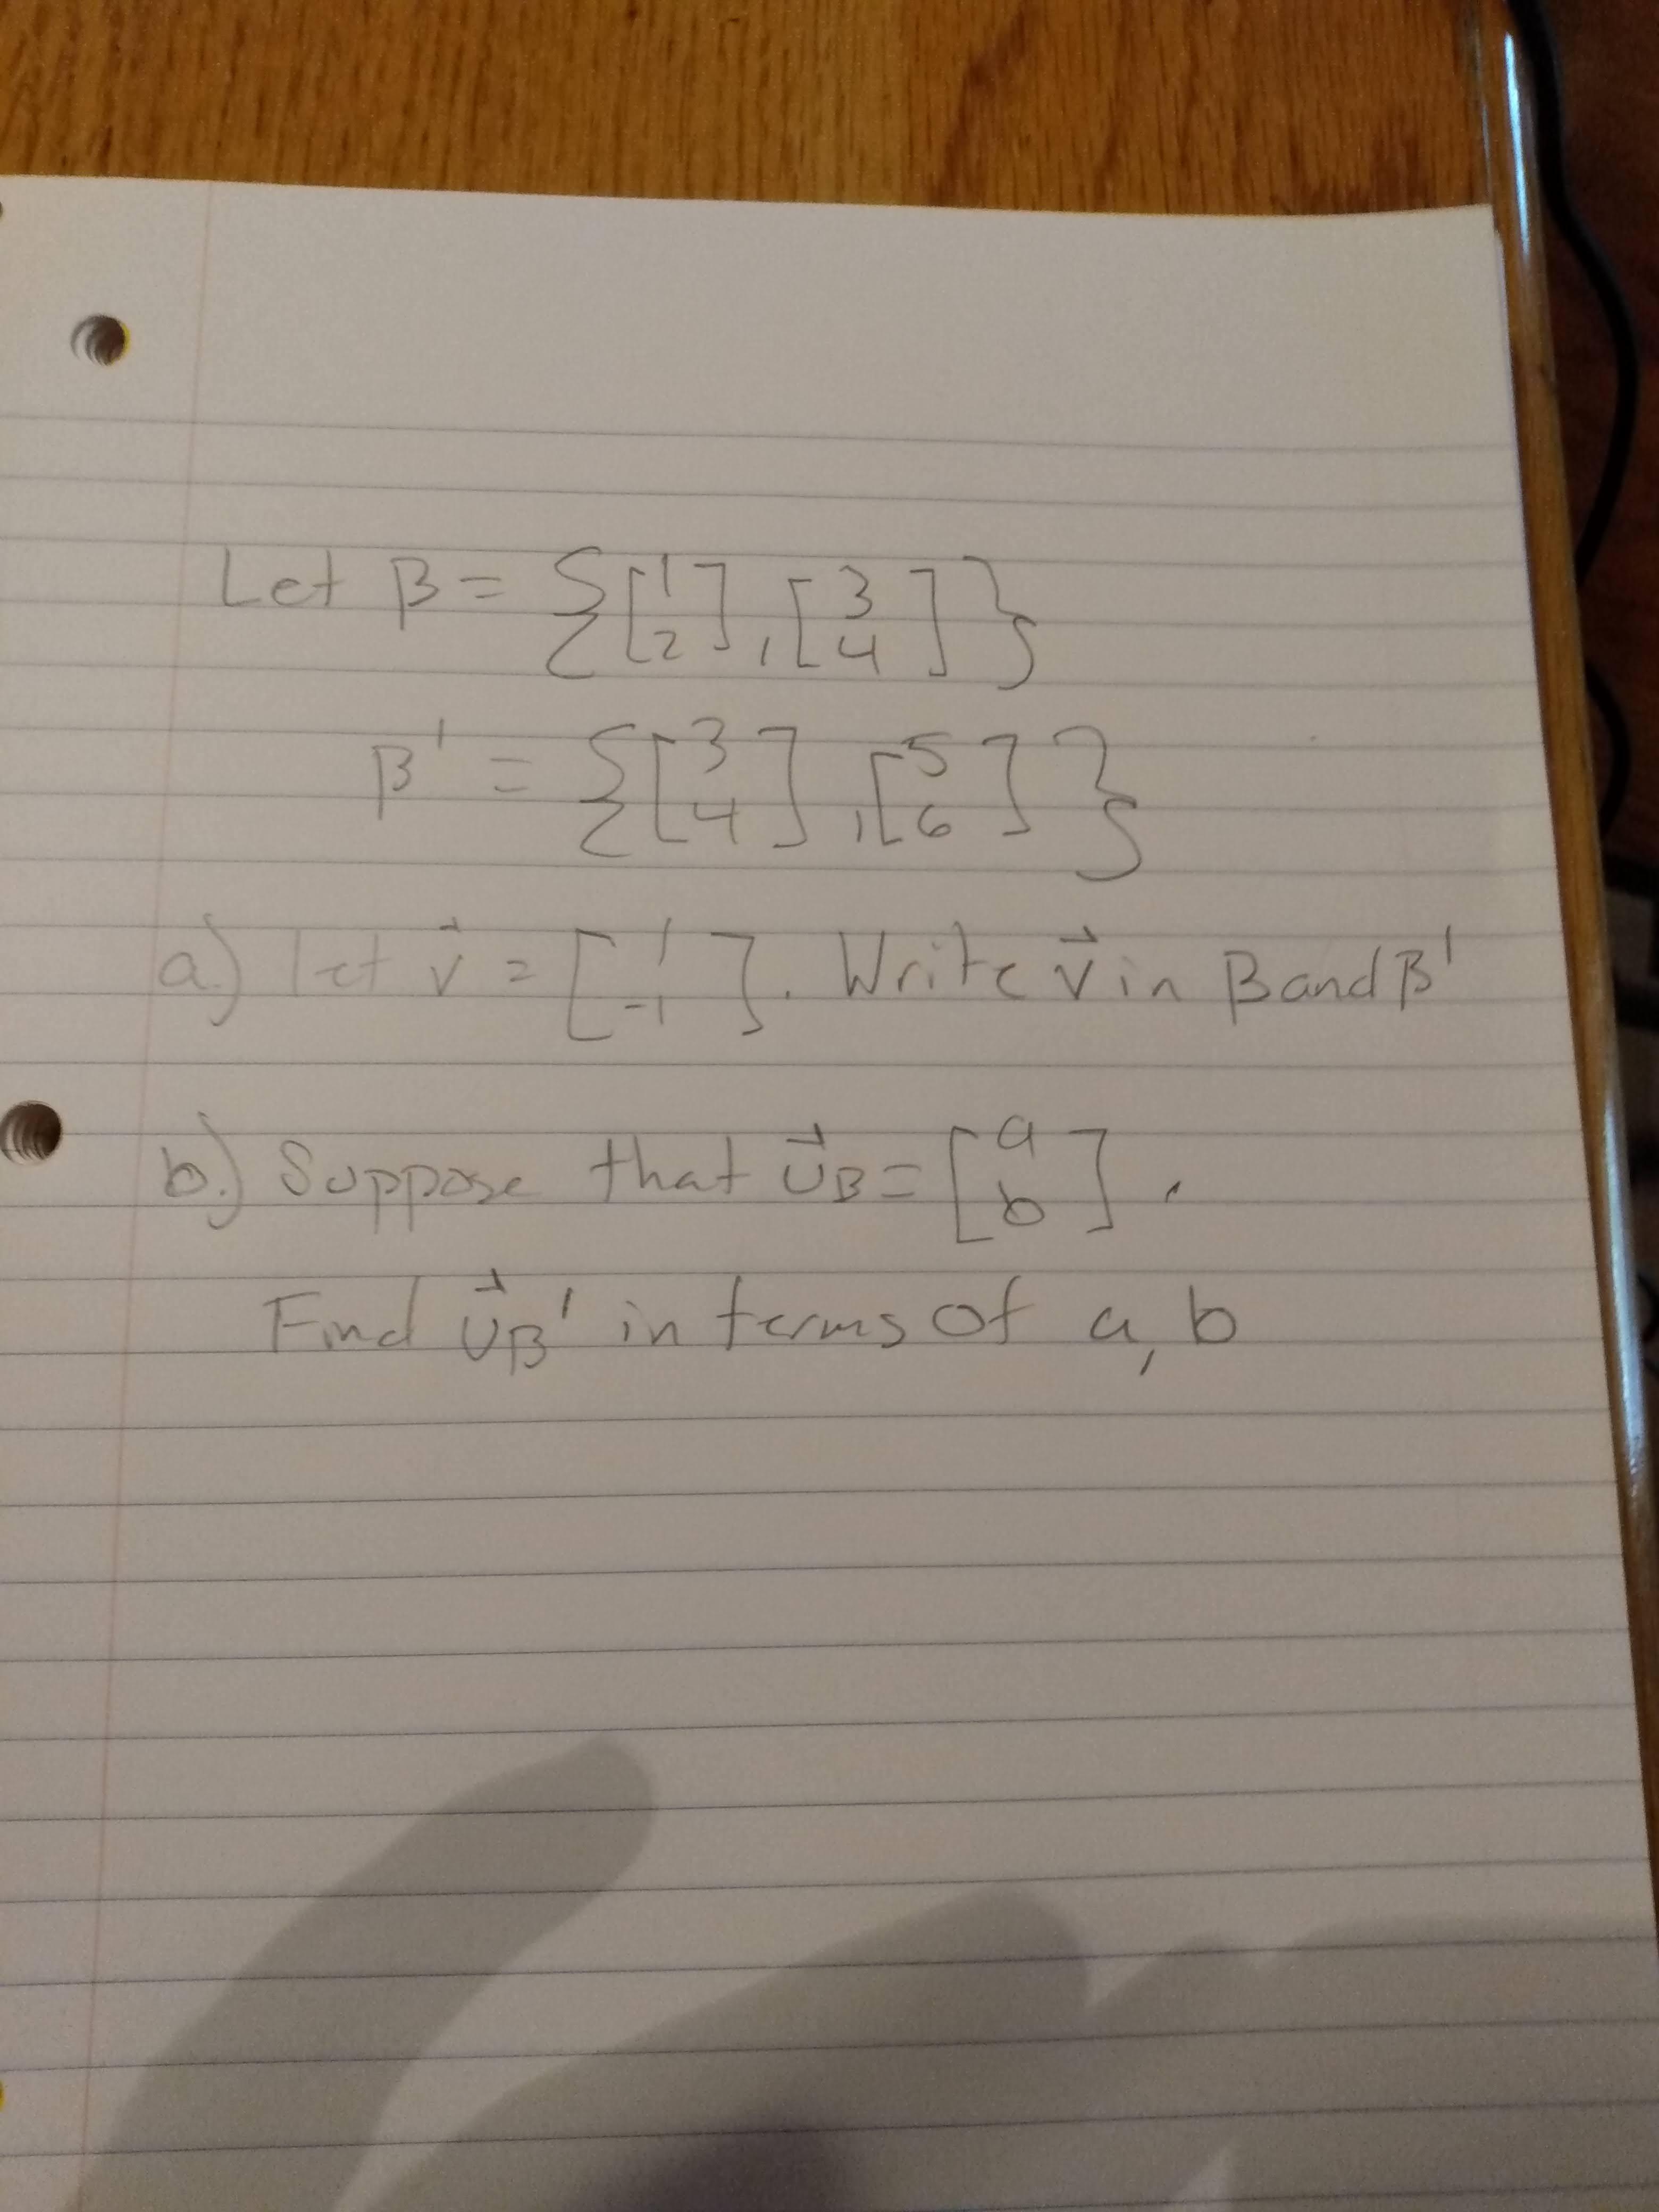 Let β = {[1 2], [3 4]}
β' = {[3 4], [5 6]}
a.) let v⃗ = [1 -1]. Write v⃗ in β and β'
b.) Suppose that u⃗β = [a b].
Find u⃗β' in terms of a, b